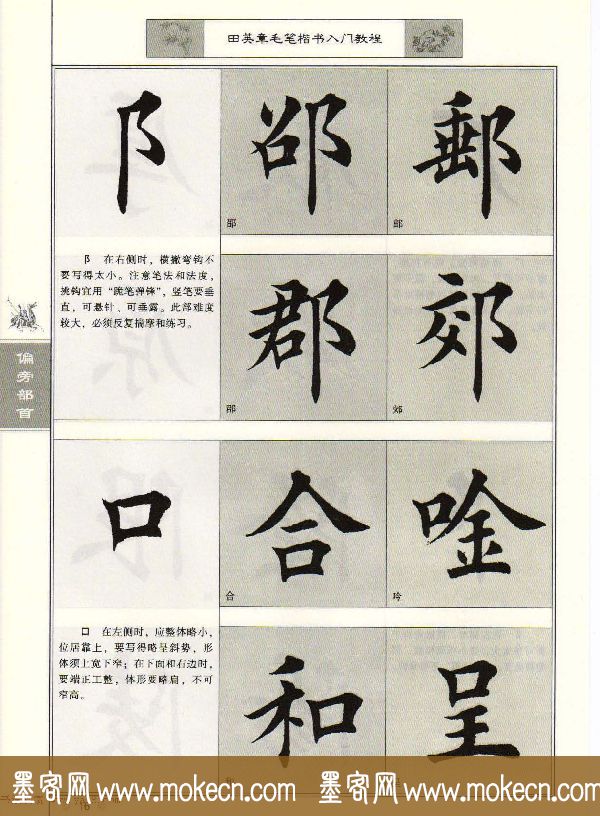 田英章毛笔楷书入门教程
阝 邵 郵
邵
邮
阝 在右侧时，横撇弯钩不
要写得太小。注意笔法和法度，
挑钩宜用“跪笔弹锋”，竖笔要垂
直，可悬针、可垂露。此部难度
较大，必须反复揣摩和练习。
郡 郊
郡
郊
偏旁部首
口 合 唫
合
吟
口 在左侧时，应整体略小，
位居靠上，要写得略呈斜势，形
体须上宽下窄；在下面和右边时，
要端正工整，体形要略扁，不可
窄高。
和 呈
墨客网 www.mokecn.com 墨客网 www.mokecn.com